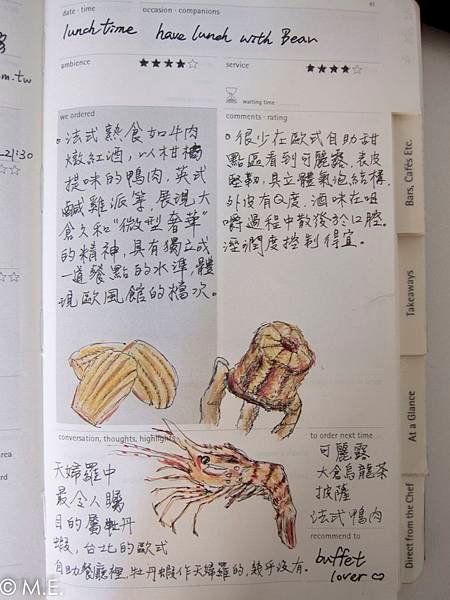 date · time
occasion · companions
91
lunch time have lunch with Bear
ambience
★★★★☆
service
★★★★☆
waiting time
we ordered
comments · rating
。法式熟食如牛肉
燉紅酒,以柑橘
提味的鴨肉,英式
鹹雞派等,展現大
倉久和"微型奢華"
的精神,具有獨立成
一道餐點的水準,體
現歐風館的檔次。
。很少在歐式自助甜
點區看到可麗露,表皮
堅韌,具立體氣泡結構。
外皮有Q度,酒味在咀
嚼過程中散發於口腔。
溼潤度控制得宜。
conversation, thoughts, highlights
天婦羅中
最令人矚
目的屬牡丹
蝦,台北的歐式
自助餐廳裡,牡丹蝦作天婦羅的,幾乎沒有。
to order next time
可麗露
大倉烏龍茶
披薩
法式鴨肉
recommend to
buffet
lover
Bars, Cafés Etc.
Takeaways
At a Glance
Direct from the Chef
m.tw
21:30
area
© M.E.